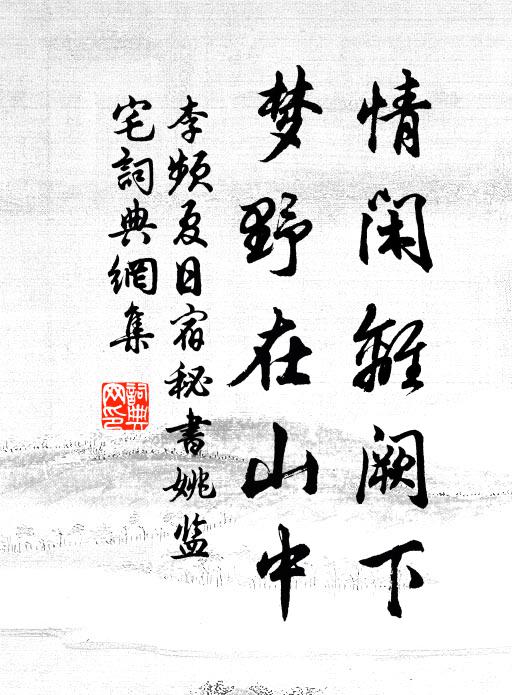 情閑離闕下
梦野在山中
李频夏日宿秘書姚监
宅詞典網集
詞典网印